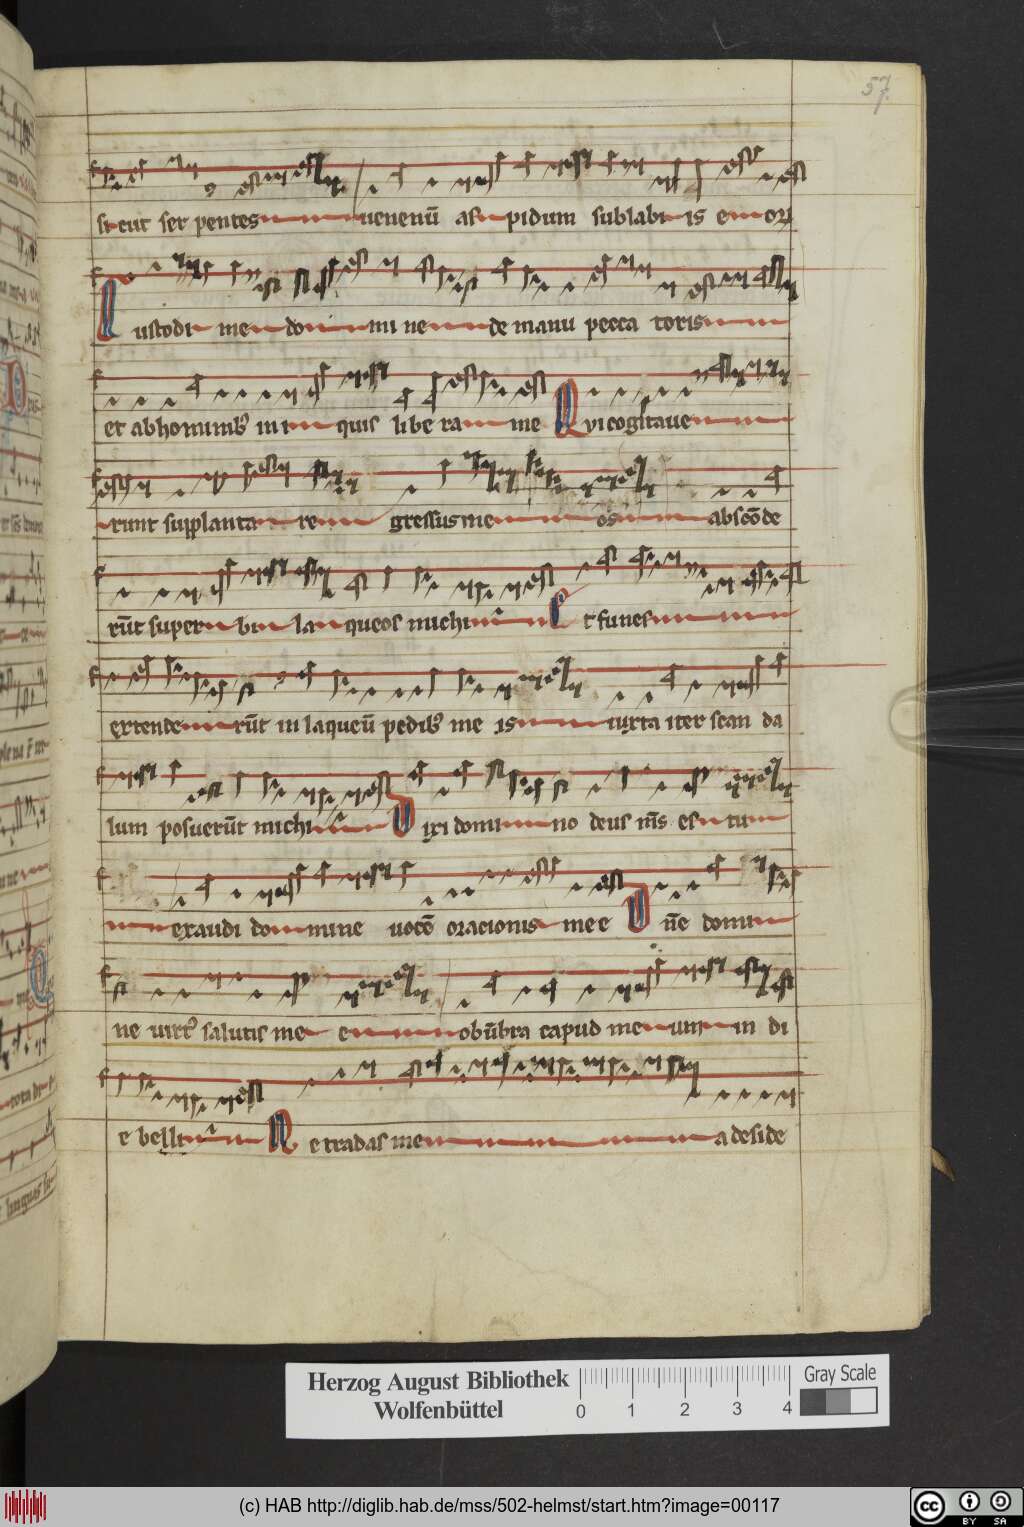 57
sicut serpentes uenenū aspidum sub labiis eorum
Custodi me domine de manu peccatoris
et ab hominibꝫ iniquis libera me Qui cogitaue
runt supplantare gressus meos abscōde
rūt superbi laqueos michi Et funes
extenderūt in laqueū pedibꝫ meis iuxta iter scandalum
lum posuerūt michi Dixi domino deus m̄s es tu
exaudi domine uocē oracionis mee Dn̄e domi
ne uirtꝰ salutis mee obūbra capud meum in di
e belli Ne tradas me a deside
Herzog August Bibliothek
Wolfenbüttel
0 1 2 3 4
Gray Scale
(c) HAB http://diglib.hab.de/mss/502-helmst/start.htm?image=00117
cc BY SA